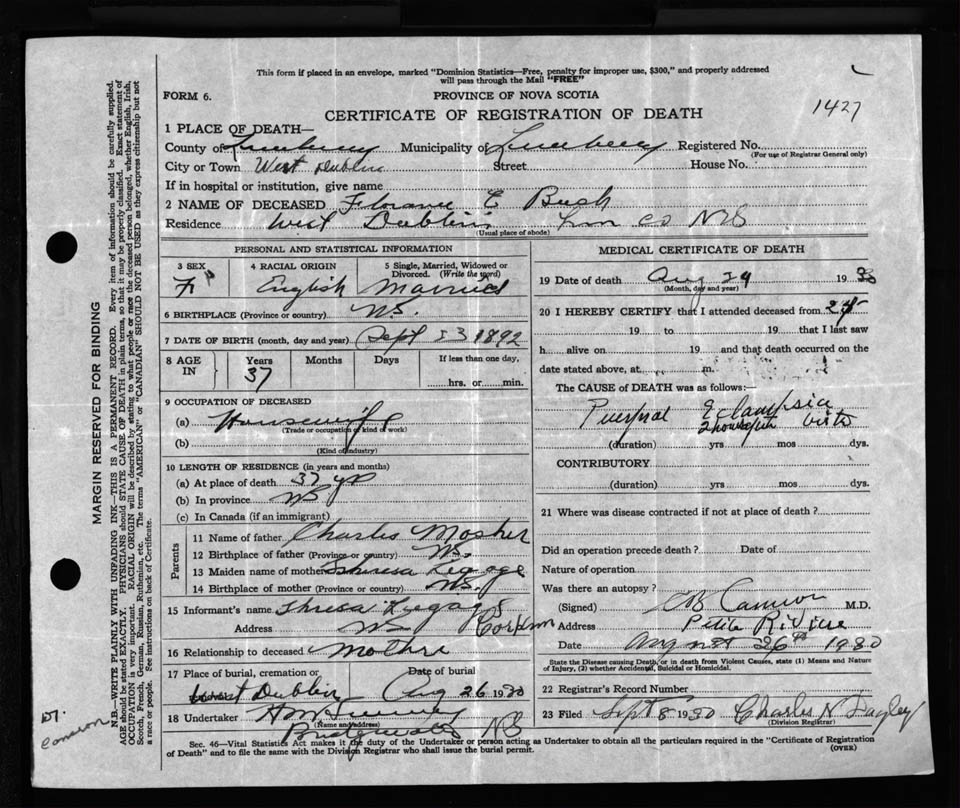 This form if placed in an envelope, marked "Dominion Statistics—Free, penalty for improper use, $300," and properly addressed
will pass through the Mail "FREE"
FORM 6.
PROVINCE OF NOVA SCOTIA
1427
CERTIFICATE OF REGISTRATION OF DEATH
1 PLACE OF DEATH—
County of Lunenburg Municipality of Lunenburg Registered No.
(For use of Registrar General only)
City or Town West Dublin Street House No.
If in hospital or institution, give name
2 NAME OF DECEASED Florance E Bush
Residence West Dublin Lun Co NS
(Usual place of abode)
PERSONAL AND STATISTICAL INFORMATION
3 SEX 4 RACIAL ORIGIN 5 Single, Married, Widowed or Divorced. (Write the word)
F English Married
6 BIRTHPLACE (Province or country) NS.
7 DATE OF BIRTH (month, day and year) Sept 1892
8 AGE IN Years Months Days If less than one day,
37 hrs. or min.
9 OCCUPATION OF DECEASED
(a) Housewife
(Trade or occupation or kind of work)
(b)
(Kind of industry)
10 LENGTH OF RESIDENCE (in years and months)
(a) At place of death 37 yrs
(b) In province NS
(c) In Canada (if an immigrant)
Parents
11 Name of father Charles Mosher
12 Birthplace of father (Province or country) NS.
13 Maiden name of mother
14 Birthplace of mother (Province or country) NS.
15 Informant's name
Address NS
16 Relationship to deceased Mother
17 Place of burial, cremation or Date of burial
West Dublin Aug 26 1930
18 Undertaker
(Name and address)
Bridgewater NS
MEDICAL CERTIFICATE OF DEATH
19 Date of death Aug 24 1930
(Month, day and year)
20 I HEREBY CERTIFY that I attended deceased from 24
19 to 19 that I last saw
h alive on 19 and that death occurred on the
date stated above, at m.
The CAUSE OF DEATH was as follows:—
Puerperal Eclampsia
(duration) yrs mos dys.
CONTRIBUTORY
(duration) yrs mos dys.
21 Where was disease contracted if not at place of death?
Did an operation precede death? Date of
Nature of operation
Was there an autopsy?
(Signed) Cameron M.D.
Address Petite Riviere
Date August 26th 1930
State the Disease causing Death, or in death from Violent Causes, state (1) Means and Nature of Injury, (2) whether Accidental, Suicidal or Homicidal.
22 Registrar's Record Number
23 Filed Sept 8 1930 Charles N
(Division Registrar)
Sec. 46—Vital Statistics Act makes it the duty of the Undertaker or person acting as Undertaker to obtain all the particulars required in the "Certificate of Registration
of Death" and to file the same with the Division Registrar who shall issue the burial permit.
(OVER)
MARGIN RESERVED FOR BINDING
N.B.—WRITE PLAINLY WITH UNFADING INK—THIS IS A PERMANENT RECORD. Every item of information should be carefully supplied.
AGE should be stated EXACTLY. PHYSICIANS should STATE CAUSE OF DEATH in plain terms, so that it may be properly classified. Exact statement of
OCCUPATION is very important. RACIAL ORIGIN will be described by stating to what people or race the deceased person belonged, whether English, Irish,
Scotch, French, German, Russian, Ruthenian, etc. The terms "AMERICAN" or "CANADIAN" SHOULD NOT BE USED as they express citizenship but not
a race or people. See instructions on back of Certificate.